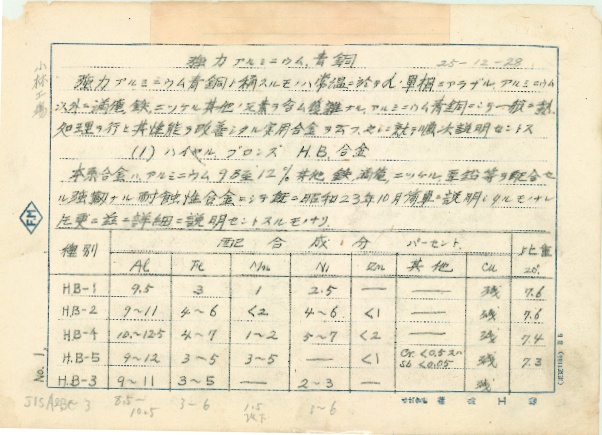 強力アルミニウム青銅 25-12-28.
強力アルミニウム青銅ト稱スルモノハ常温ニ於テα單相ニアラザル、アルミニウム
以外ニ満俺、鉄、ニッケル其他ノ元素ヲ含ム複雜ナル、アルミニウム青銅ニシテ一般ニ熱
処理ヲ行ヒ其性能ヲ改善シタル実用合金ヲ云フ、
順次説明セントス
(1) ハイヤル ブロンズ H.B. 合金
本系合金ハ、アルミニウム 9.5至12%、其他 鉄、満俺、ニッケル、亞鉛等ヲ配合セ
ル強靱ナル耐蝕性合金ニシテ 昭和23年10月 説明シタルモノナレド
茲ニ詳細ニ説明セントスルモノナリ
小林工場
FM
種別 配合成分 パーセント. 比重
Al Fe Mn Ni Zn 其他 Cu 20°
HB-1 9.5 3 1 2.5 — — 残 7.6
HB-2 9~11 4~6 <2 4~6 <1 — 残 7.6
HB-4 10~12.5 4~7 1~2 5~7 <2 — 残 7.4
HB-5 9~12 3~5 3~5 — <1 Cr <0.5 Sb <0.05 残 7.3
HB-3 9~11 3~5 — 2~3 — 残
No. 1,
8.5~10.5 3~6 1.5以下 3~6